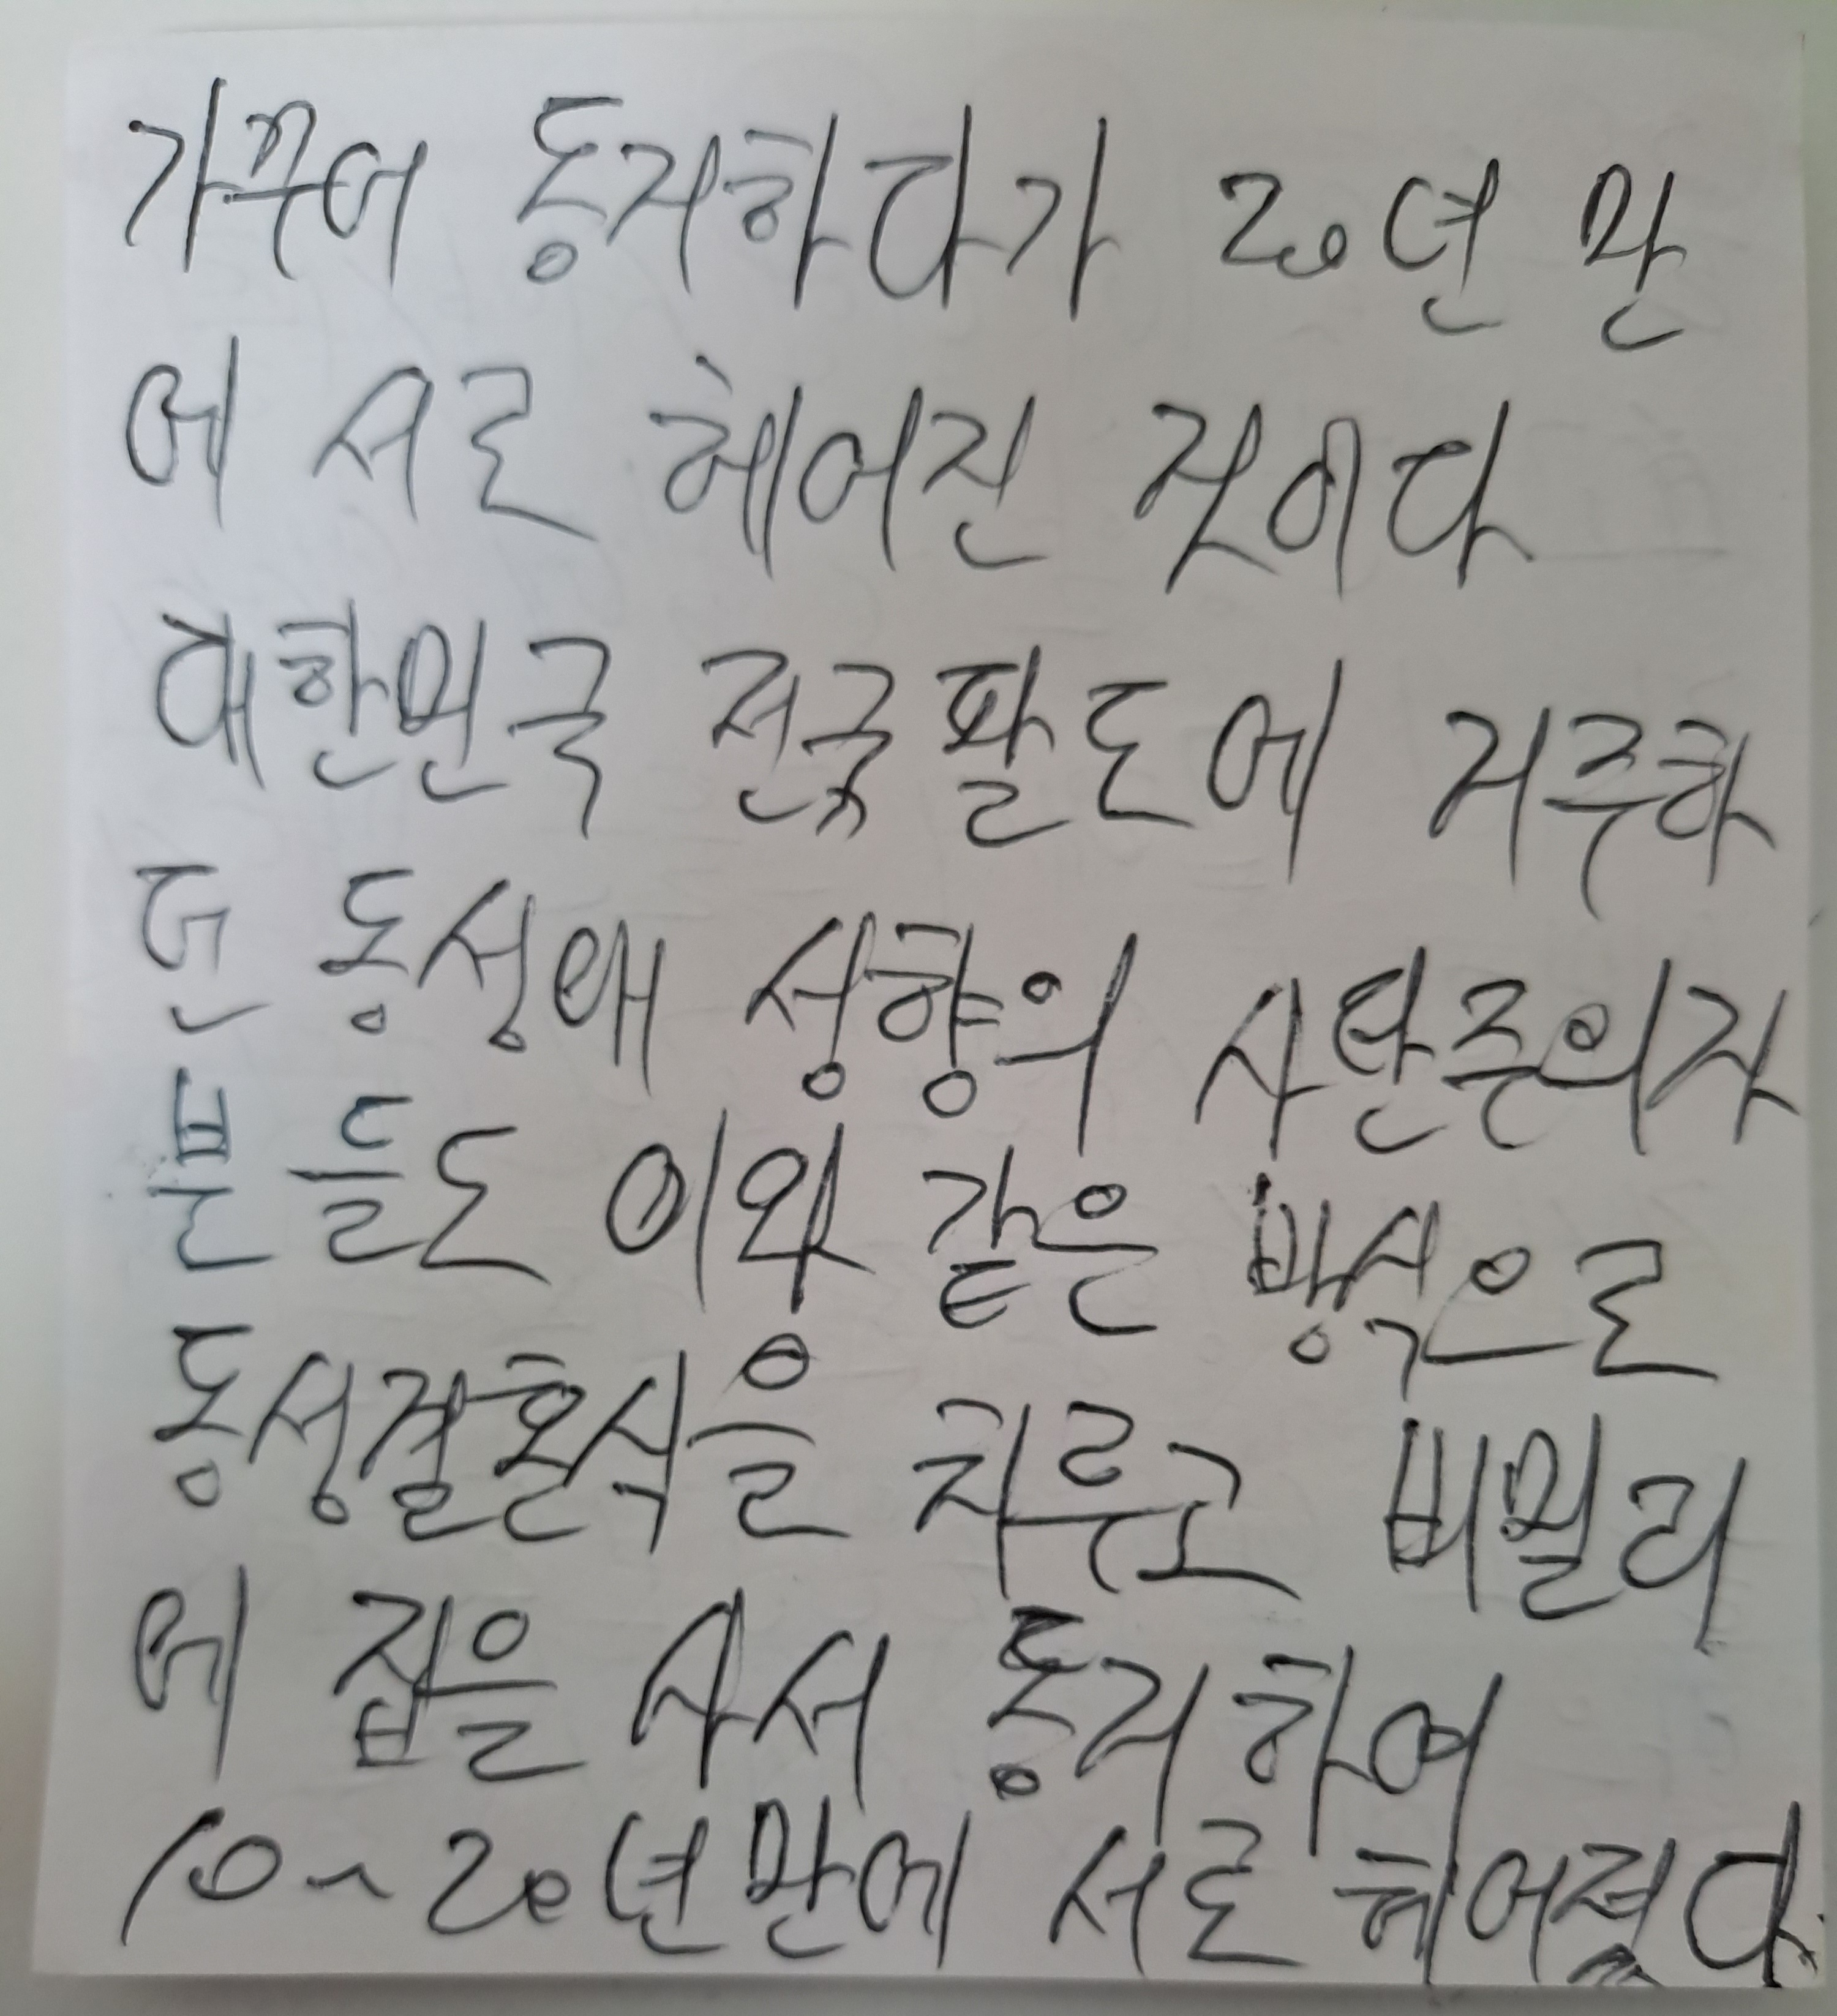 가꾸어 동거하다가 20년 만
에 서로 헤어진 것이다
대한민국 전국팔도에 거주하
던 동성애 성향의 사탄주의자
분들도 이와 같은 방식으로
동성결혼식을 치루고 비밀리
에 집을 사서 동거하여
10~20년만에 서로 헤어졌다.